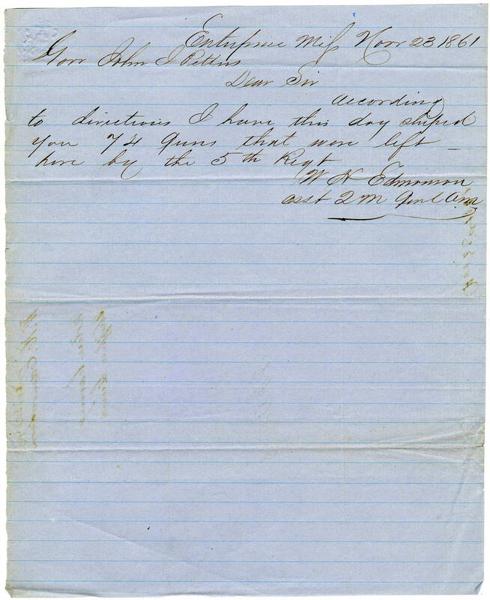 Enterprise Miss Novr 23 1861
Govr John J Pettus
Dear Sir
According
to directions I have this day shiped
you 74 Guns that were left
here by the 5th Regt
W H Edmonson
asst Q M Genl